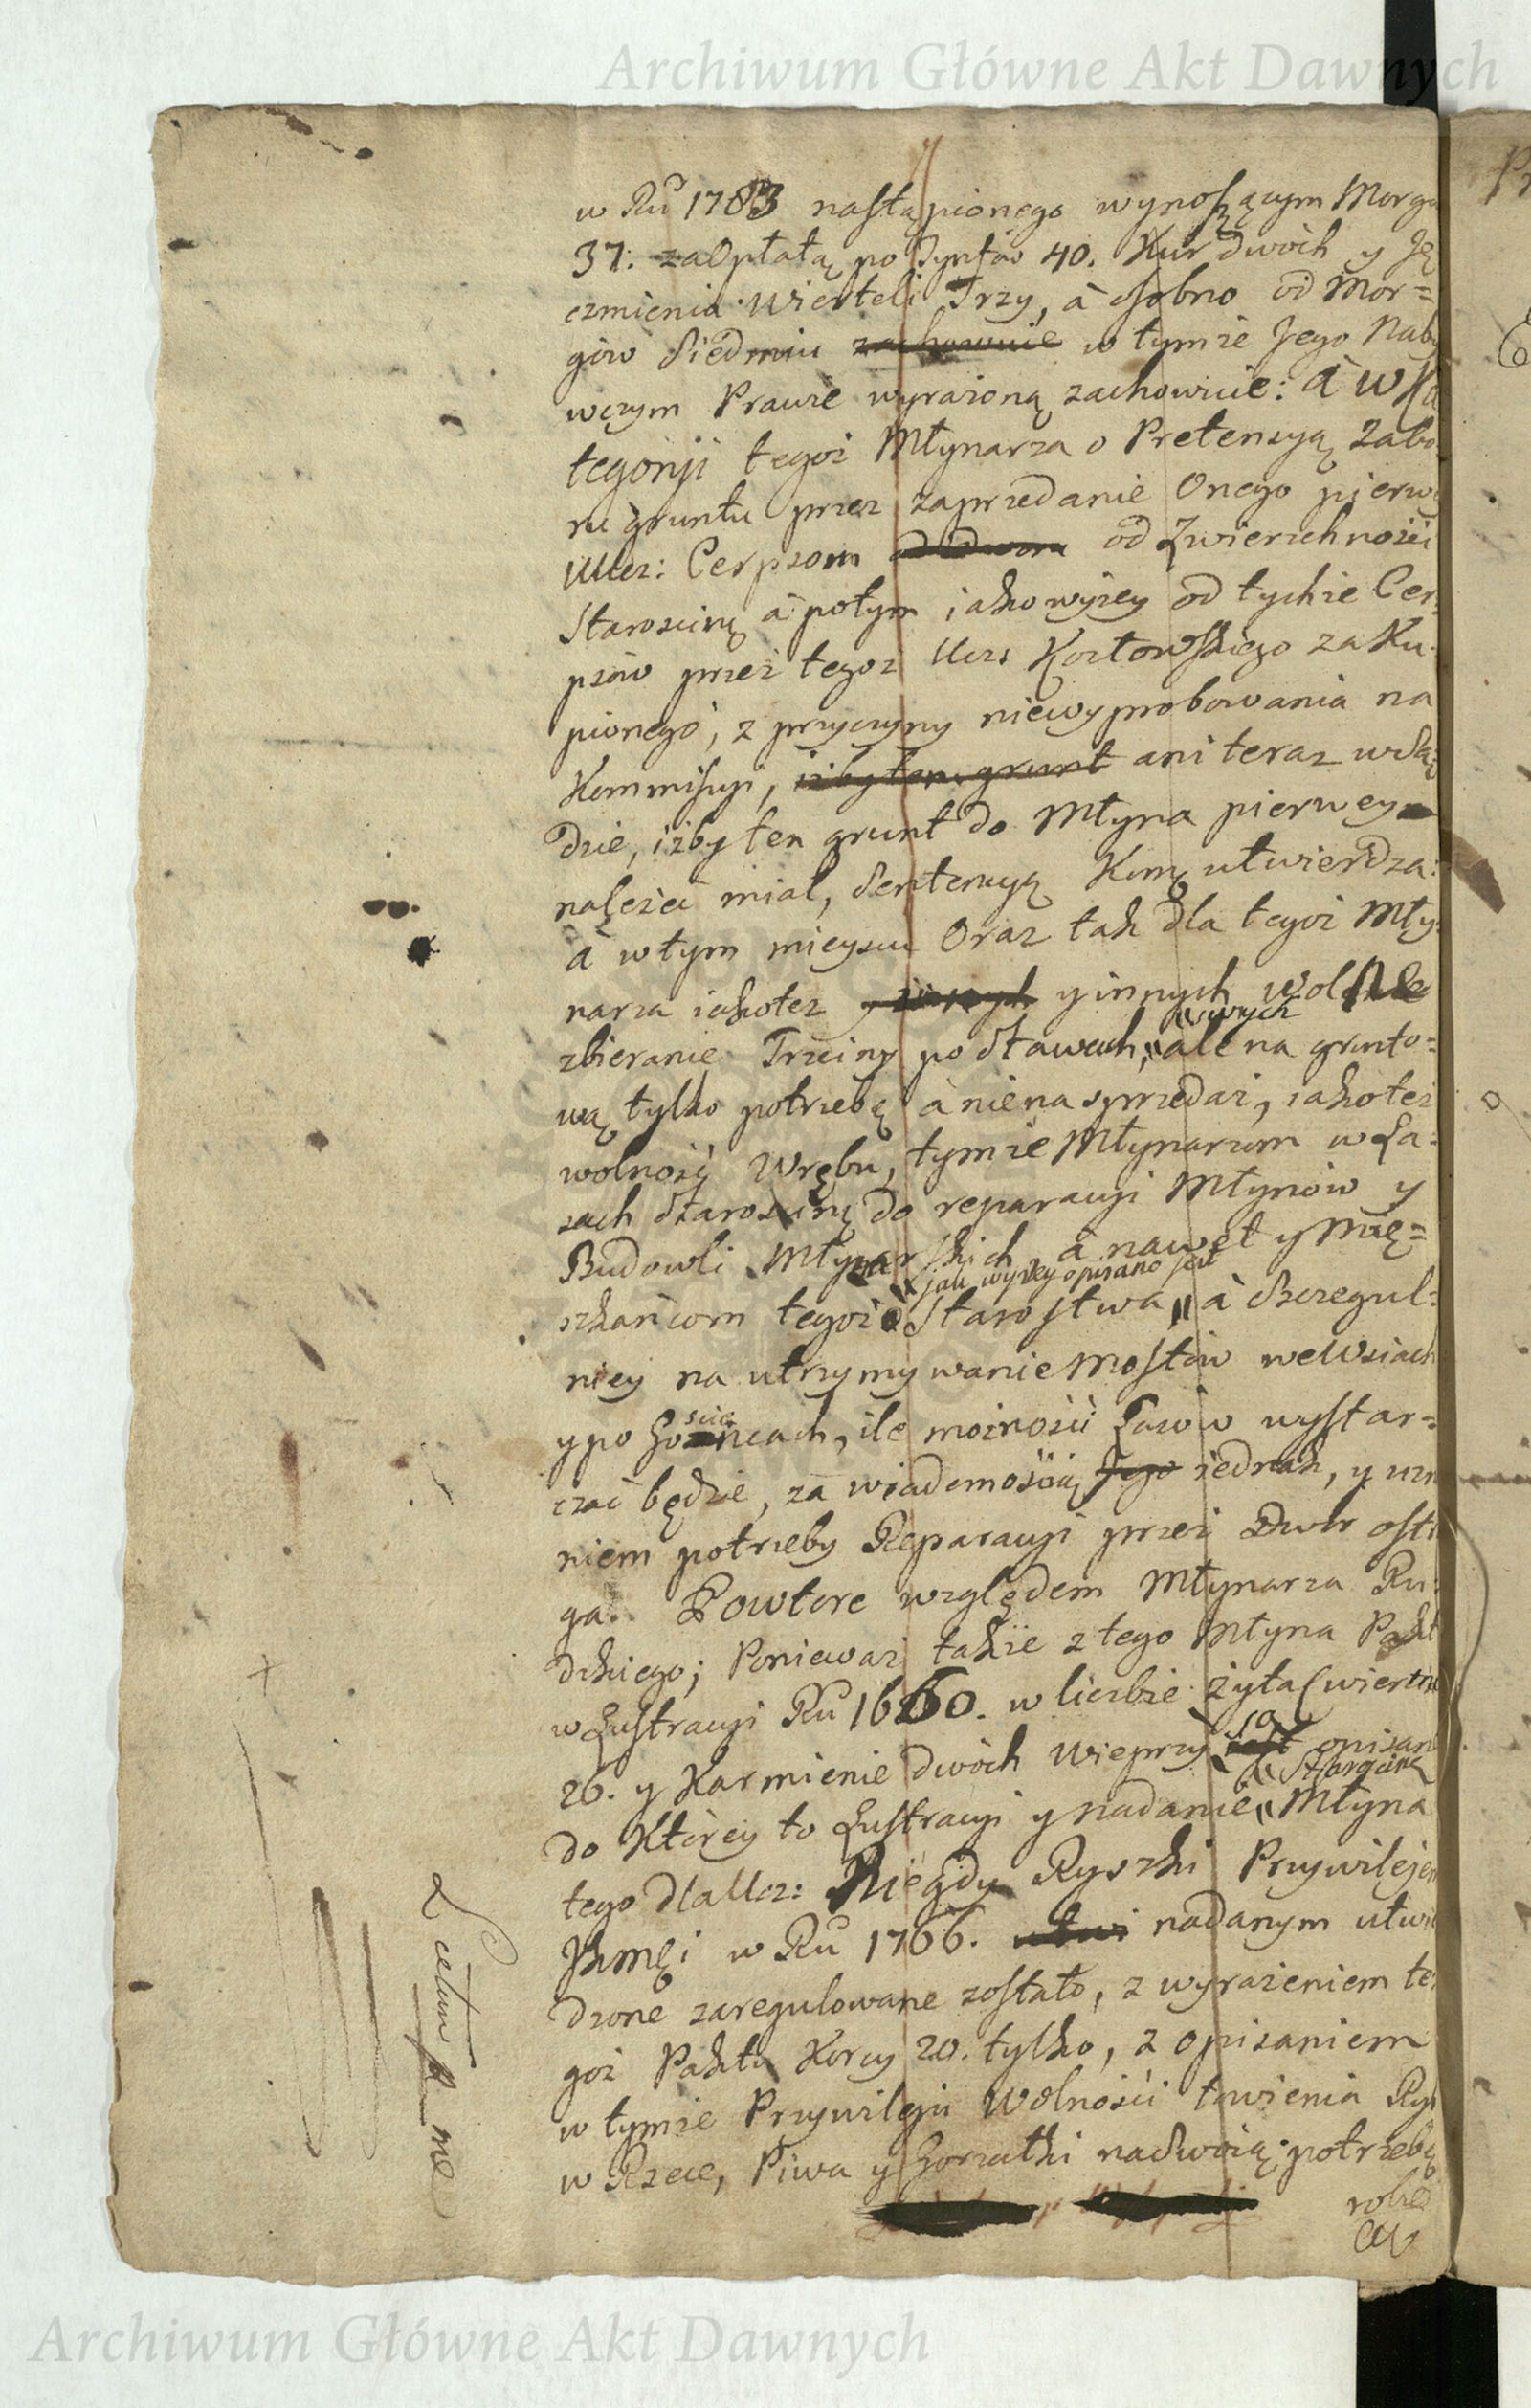 Archiwum Główne Akt Dawnych
w Ru 1783 nastąpionego wynoszącym Morgo
37: za Opłatą po Tynfów 40. Kur dwóch y Ję
czmienia Wierteli Trzy, à osobno od Mor=
gów Siedmiu zachowuie w tymże Jego Naby
wczym Prawie wyrażoną zachowuie: à w Ka
tegoryi tegoż Młynarza o Pretensyą Zabo
ru gruntu przez zaprzedanie Onego pierwe
Ucz: Cerpsom od Zwierzchności
Starościnę à potym iako wyżey od tychże Cer
psów przez tegoż Ucz: Kozłowskiego zaku
pionego, z przyczyny niewyprobowania na
Kommissyi, iżby ten grunt ani teraz w Są
dzie, iżby ten grunt do Młyna pierwey
należeć miał, Sentencyą Komę utwierdza:
à w tym mieyscu Oraz tak dla tegoż Mły
narza iakoteż y innych wolne
zbieranie Trzciny po Stawach, ale na grunto=
swych
wą tylko potrzebę à nie na sprzedaż, iakoteż
wolność Wrębu, tymże Młynarzom w La:
sach Starościnę do reparacyi Młynów y
Budowli Młynarskich, à nawet y Mię=
jak wyżey opisano jest
szkańcom tegoż Starostwa à Szczegul:
niey na utrzymywanie Mostów we Wsiach
y po Gościńcach, ile możność Lasów wystar=
czać będzie, za wiadomością Jego iednak, y uzn
niem potrzeby Reparacyi przez Dwór ostr
ga. Powtore względem Młynarza Ru:
dzkiego; Ponieważ także z tego Młyna Pakt
w Lustracyi Ru 1660. w liczbie żyta Cwiertni
26. y Karmienie dwóch Wieprzy są opisan
do Którey to Lustracyi y nadanie Młyna
Starościnę
tego dla Ucz: Niegdy Ryszki Przywilejem
Jkmęi w Ru 1766. nadanym utwie
dzone zaregulowane zostało, z wyrażeniem te
goż Paktu Korcy 20. tylko, z opisaniem
w tymże Przywileju Wolności łowienia Ryb
w Rzece, Piwa y Gorzałki na Swoią potrzebę
robie
Archiwum Główne Akt Dawnych